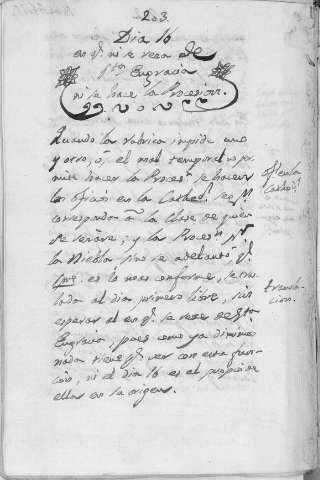 203.
Dia 16
en q.e ni se reza de
S.ta Engracia
ni se hace la Procesion.
Quando la rubrica impide uno
y otro, ó, el mal temporal no per-
mite hacer la Proces.n se hacen
los oficios en la Cathed.l
correspondan á la Clase de que
se señare; y la Proces.n p.r
la Niebla sino se adelantó, q.e
es lo mas conforme, se tras-
lada al dia primero libre, sin
esperar el en q.e se reze de S.ta
Engracia, pues como ya
nada tiene q.e ver con esta fun-
cion, ni el dia 16 es el propio de
ellas en su origen.
ofi.s en la
Cathed.l
transla-
cion.